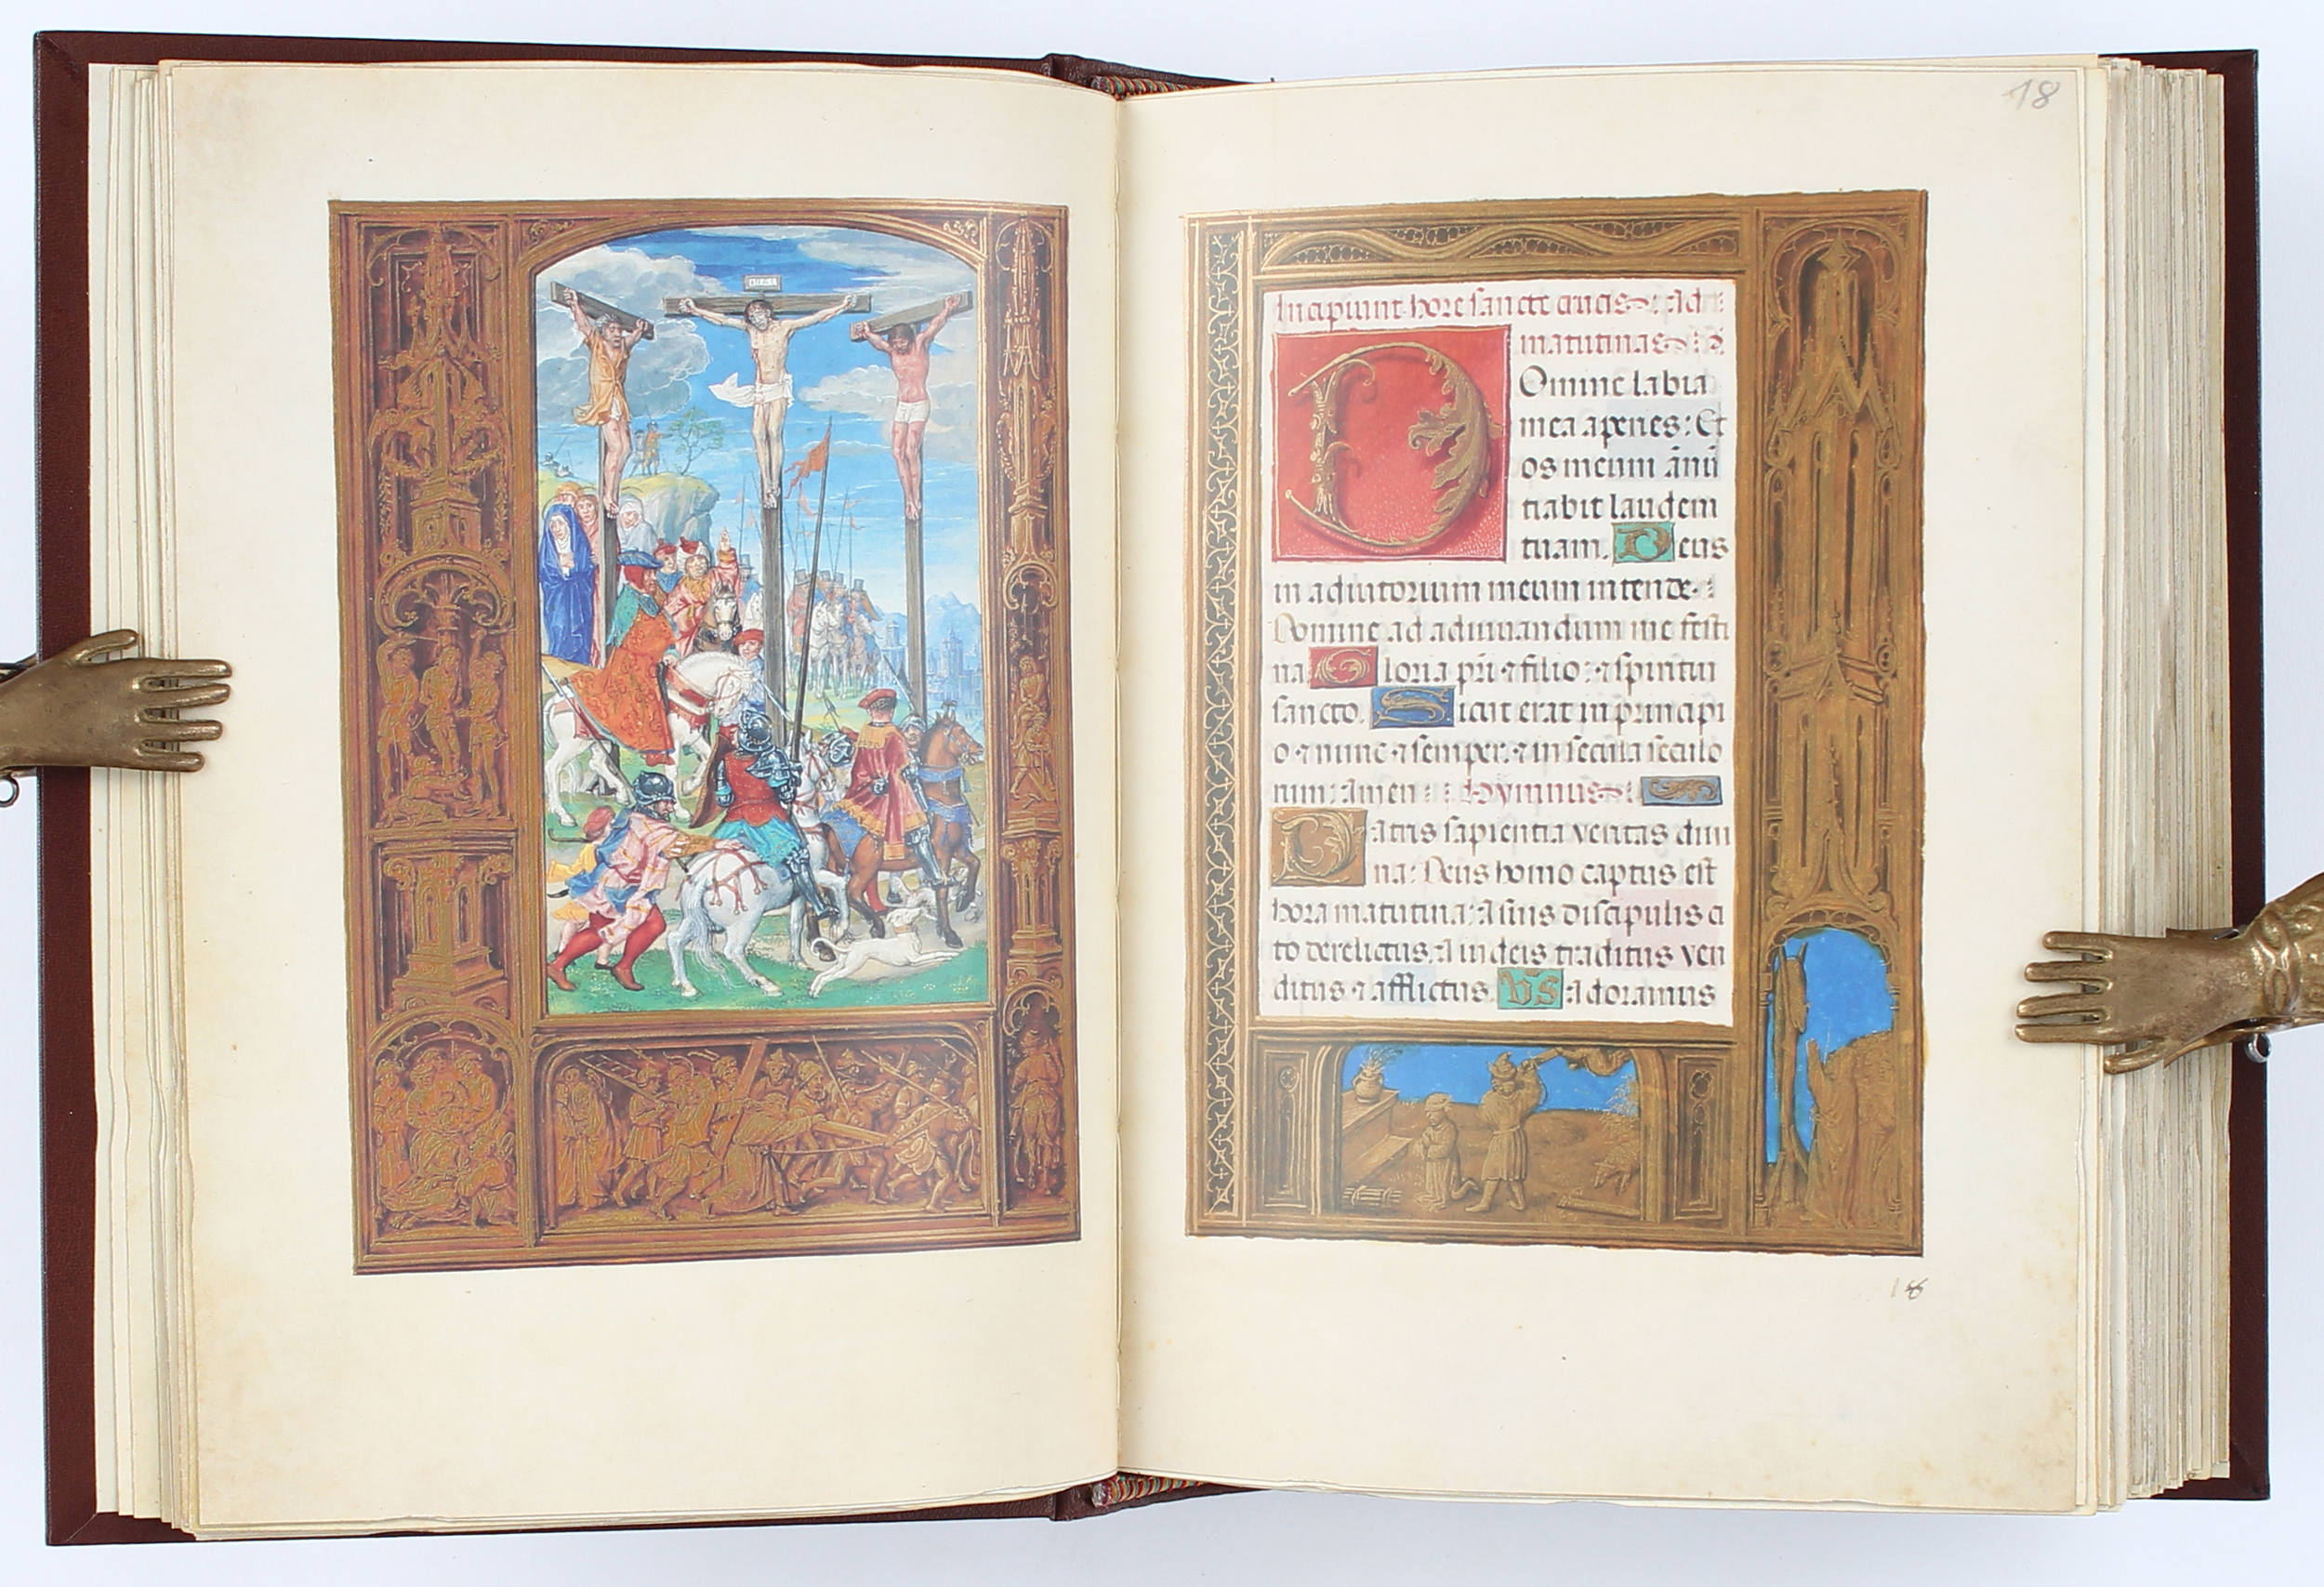 18
Incipiunt hore sancte crucis: ad
matutinas
Domine labia
mea aperies: Et
os meum ānū
tiabit laudem
tuam. Deus
in adiutorium meum intende:
Domine ad adiuuandum me festi
na. Gloria pr̄i ⁊ filio: ⁊ spiritui
sancto. Sicut erat in principi
o ⁊ nunc ⁊ semper: ⁊ in secula seculo
rum: amen: Hymnus
Patris sapientia veritas diui
na: Deus homo captus est
hora matutina: a suis discipulis ci
to derelictus: a iudeis traditus ven
ditus ⁊ afflictus. Vs̄ Adoramus